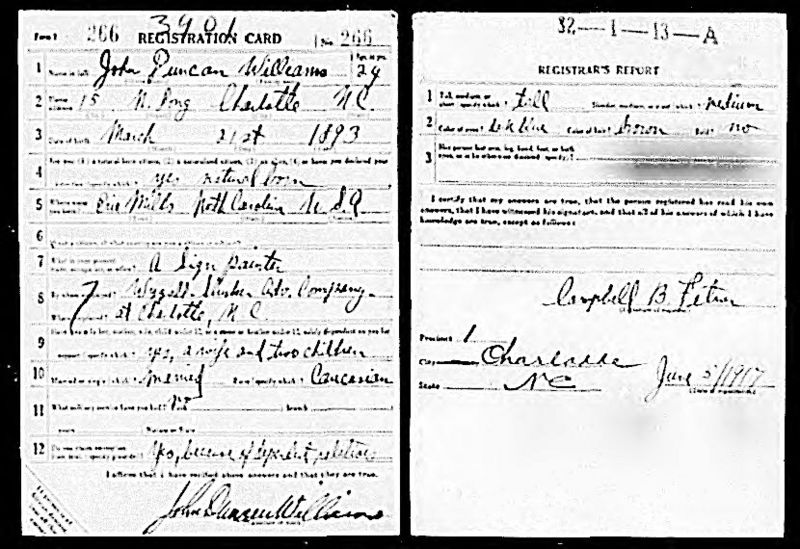 3901
Form 1 266 REGISTRATION CARD No. 266
1 Name in full John Duncan Williams Age, in yrs. 24
2 Home address 15 N. Long Charlotte NC
3 Date of birth March 21st 1893
4 Are you (1) a natural born citizen, (2) a naturalized citizen, (3) an alien, (4) or have you declared your
intention (specify which)? yes natural born
5 Where were you born? Mills North Carolina U.S.A
6
7 What is your present trade, occupation, or office? A Sign painter
8 By whom employed? Adv. Company
Where employed? at Charlotte, N.C.
9 Have you a father, mother, wife, child under 12, or a sister or brother under 12, solely dependent on you for
support (specify which)? Yes, a wife and two children
10 Married or single (which)? Married Race (specify which)? Caucasian
11 What military service have you had? Rank no branch
years Nation or State
12 Do you claim exemption from draft (specify grounds)? Yes, because of dependent relatives
I affirm that I have verified above answers and that they are true.
John Duncan Williams
32—1—13—A
REGISTRAR'S REPORT
1 Tall, medium, or short (specify which)? tall Slender, medium, or stout (which)? medium
2 Color of eyes? dark blue Color of hair? brown Bald? no
3 Has person lost arm, leg, hand, foot, or both
eyes, or is he otherwise disabled (specify)?
I certify that my answers are true, that the person registered has read his own
answers, that I have witnessed his signature, and that all of his answers of which I have
knowledge are true, except as follows:
Campbell B. Fetner
Precinct 1
City Charlotte
State NC June 5/1917